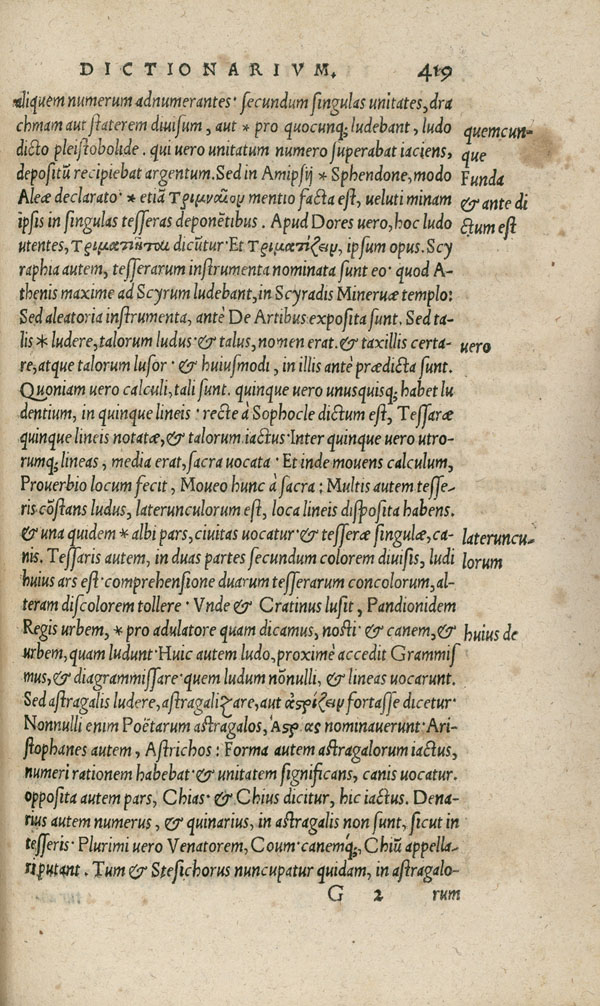 DICTIONARIVM. 419
aliquem numerum adnumerantes· secundum singulas unitates, dra
chmam aut staterem divisum, aut * pro quocunq; ludebant, ludo
quemcun-
dicto pleistobolide. qui vero unitatum numero superabat iaciens,
que
depositũ recipiebat argentum. Sed in Amipsij * Sphendone, modo
Funda
Aleæ declarato· * etiã
mentio facta est, veluti minam
& ante di
ipsis in singulas tesseras deponẽtibus. Apud Dores vero, hoc ludo
ctum est
utentes,
dicũtur· Et
ipsum opus. Scy
raphia autem, tesserarum instrumenta nominata sunt eo· quod A-
thenis maxime ad Scyrum ludebant, in Scyradis Minervæ templo:
Sed aleatoria instrumenta, antè De Artibus exposita sunt. Sed ta-
lis * ludere, talorum ludus· & talus, nomen erat. & taxillis certa-
vero
re, atque talorum lusor· & huiusmodi, in illis antè prædicta sunt.
Quoniam vero calculi, tali sunt. quinque vero unusquisq; habet lu
dentium, in quinque lineis· recte à Sophocle dictum est, Tessaræ
quinque lineis notatæ, & talorum iactus· Inter quinque vero utro-
rumq; lineas, media erat, sacra vocata· Et inde movens calculum,
Proverbio locum fecit, Moveo hunc à sacra: Multis autem tesse-
ris cõstans ludus, laterunculorum est, loca lineis disposita habens.
& una quidem * albi pars, civitas vocatur· & tesseræ singulæ, ca-
lateruncu-
nis. Tessaris autem, in duas partes secundum colorem divisis, ludi
lorum
huius ars est· comprehensione duarum tesserarum concolorum, al-
teram discolorem tollere· Vnde & Cratinus lusit, Pandionidem
Regis urbem, * pro adulatore quam dicamus, nosti· & canem, &
huius de
urbem, quam ludunt· Huic autem ludo, proximè accedit Grammis
mus, & diagrammissare· quem ludum nõnulli, & lineas vocarunt.
Sed astragalis ludere, astragalizare, aut
fortasse dicetur·
Nonnulli enim Poëtarum astragalos,
nominaverunt· Ari-
stophanes autem, Astrichos: Forma autem astragalorum iactus,
numeri rationem habebat· & unitatem significans, canis vocatur.
opposita autem pars, Chias· & Chius dicitur, hic iactus. Dena-
rius autem numerus, & quinarius, in astragalis non sunt, sicut in
tesseris· Plurimi vero Venatorem, Coum· canemq;, Chiũ appella-
ri putant. Tum & Stesichorus nuncupatur quidam, in astragalo-
G 2 rum